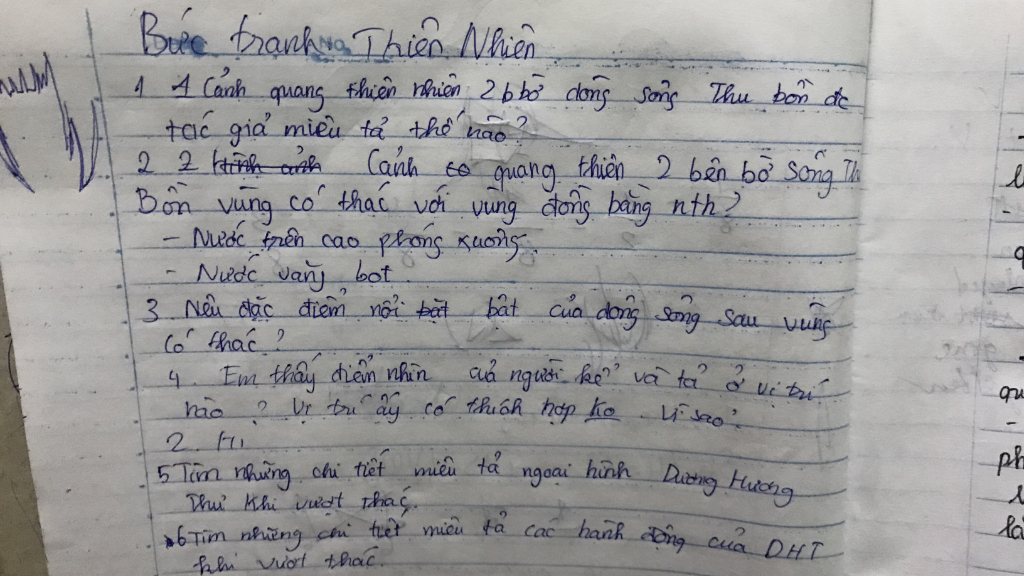 Bức tranh Thiên Nhiên
1 1 Cảnh quang thiên nhiên 2 b bờ dòng sông Thu bồn đc
tác giả miêu tả thế nào?
2 2 hình ảnh Cảnh quang thiên 2 bên bờ sông Th
Bồn vùng có thác với vùng đồng bằng nth?
- Nước trên cao phóng xuống.
- Nước văng bọt
3. Nêu đặc điểm nổi bật bật của dòng sông sau vùng
có thác?
4. Em thấy điểm nhìn của người kể và tả ở vị trí
nào? Vị trí ấy có thích hợp ko. Vì sao?
2. H
5 Tìm những chi tiết miêu tả ngoại hình Dượng Hương
Thư khi vượt thác.
6 Tìm những chi tiết miêu tả các hành động của DHT
khi vượt thác.